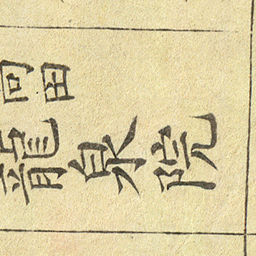 同田
龍泉院